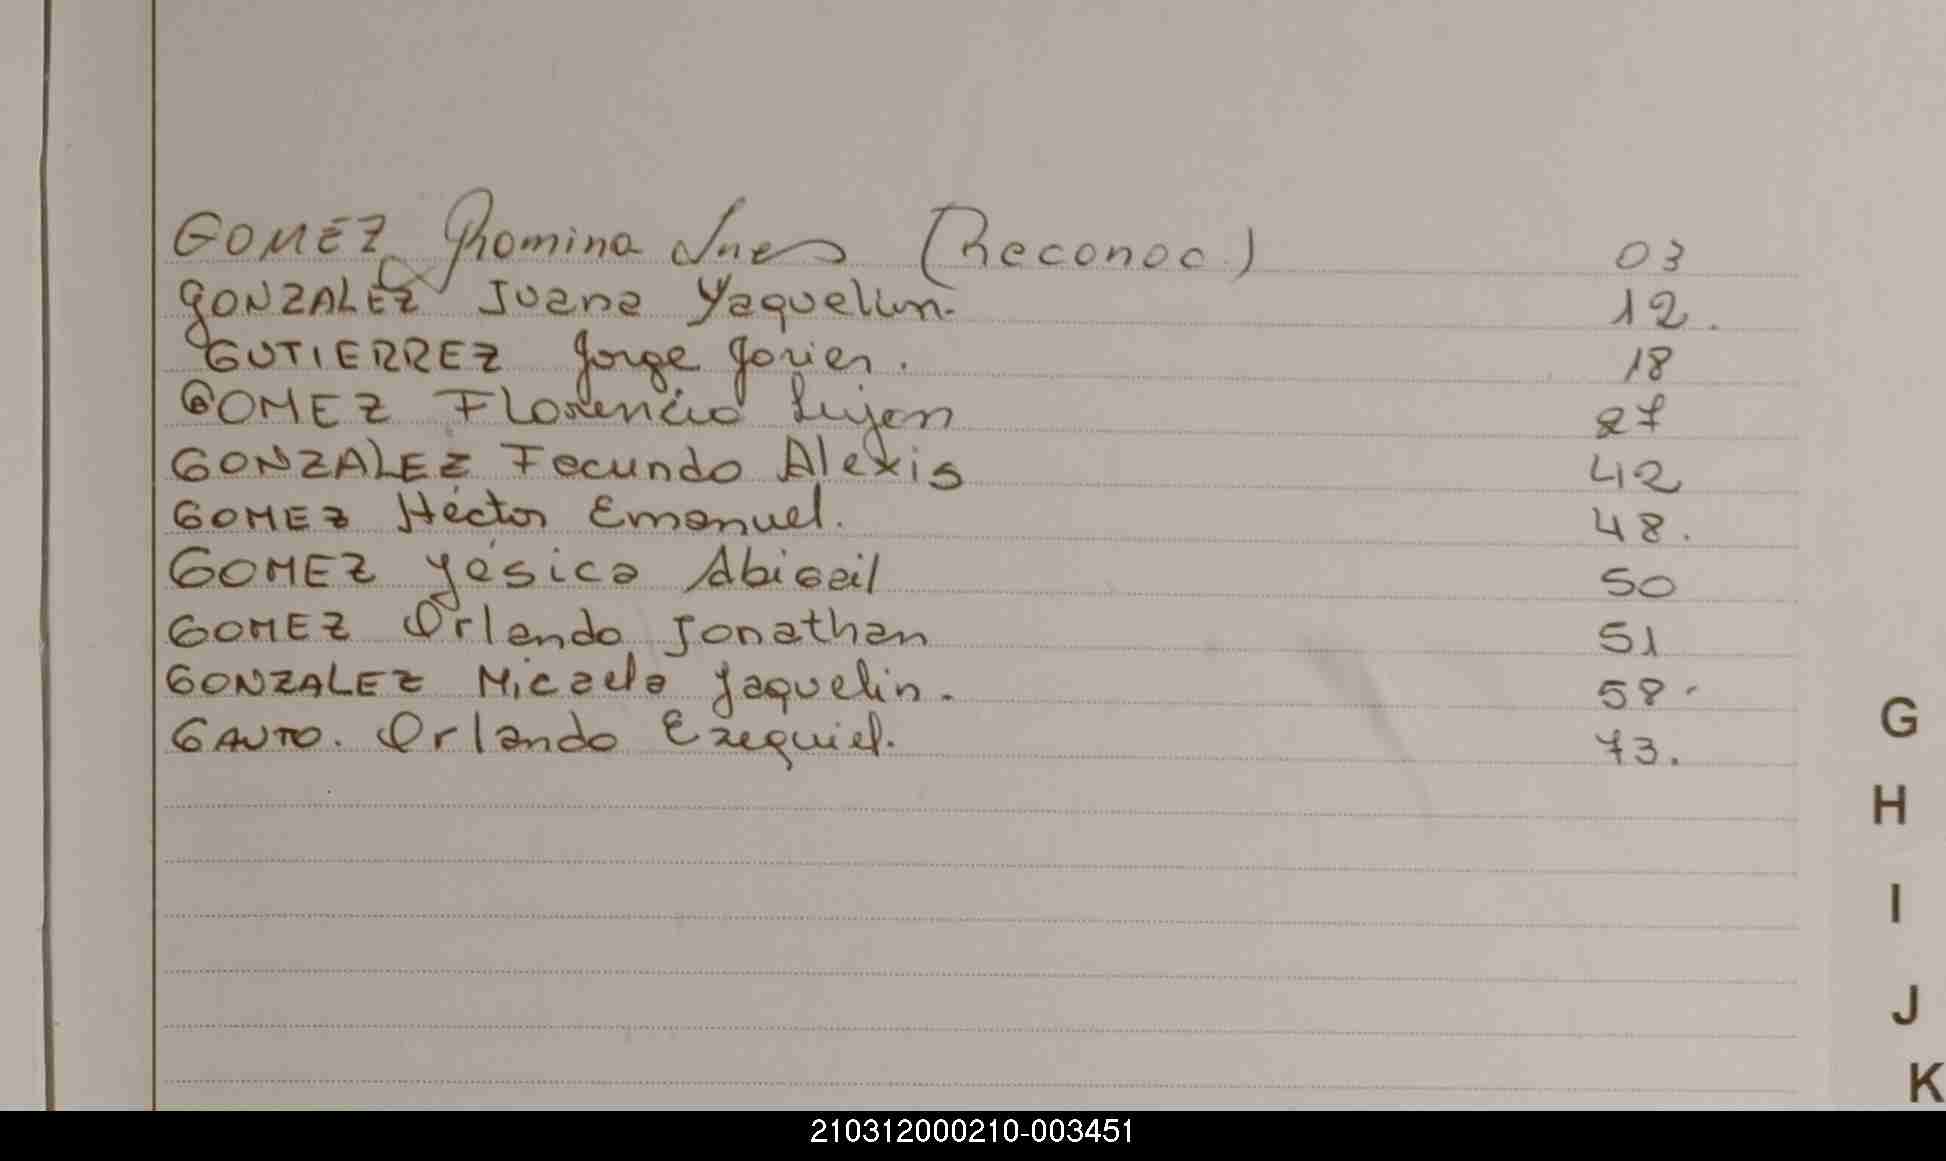 GOMEZ Romina Ines (Reconoc.) 03
GONZALEZ Juana Yaquelin. 12.
GUTIERREZ Jorge Javier. 18
GOMEZ Florencia Lujan 27
GONZALEZ Facundo Alexis 42
GOMEZ Héctor Emanuel. 48.
GOMEZ Yésica Abigail 50
GOMEZ Orlando Jonathan 51
GONZALEZ Micaela Jaquelin. 58.
GAUTO. Orlando Ezequiel. 73.
G
H
I
J
K
210312000210-003451